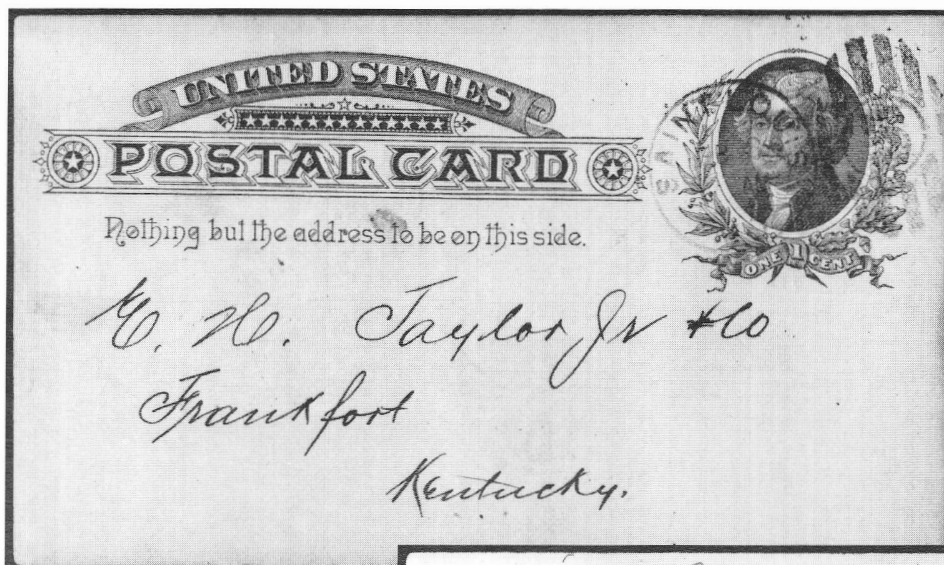 UNITED STATES
POSTAL CARD
Nothing but the address to be on this side.
ONE 1 CENT
E. H. Taylor Jr & Co
Frankfort
Kentucky.